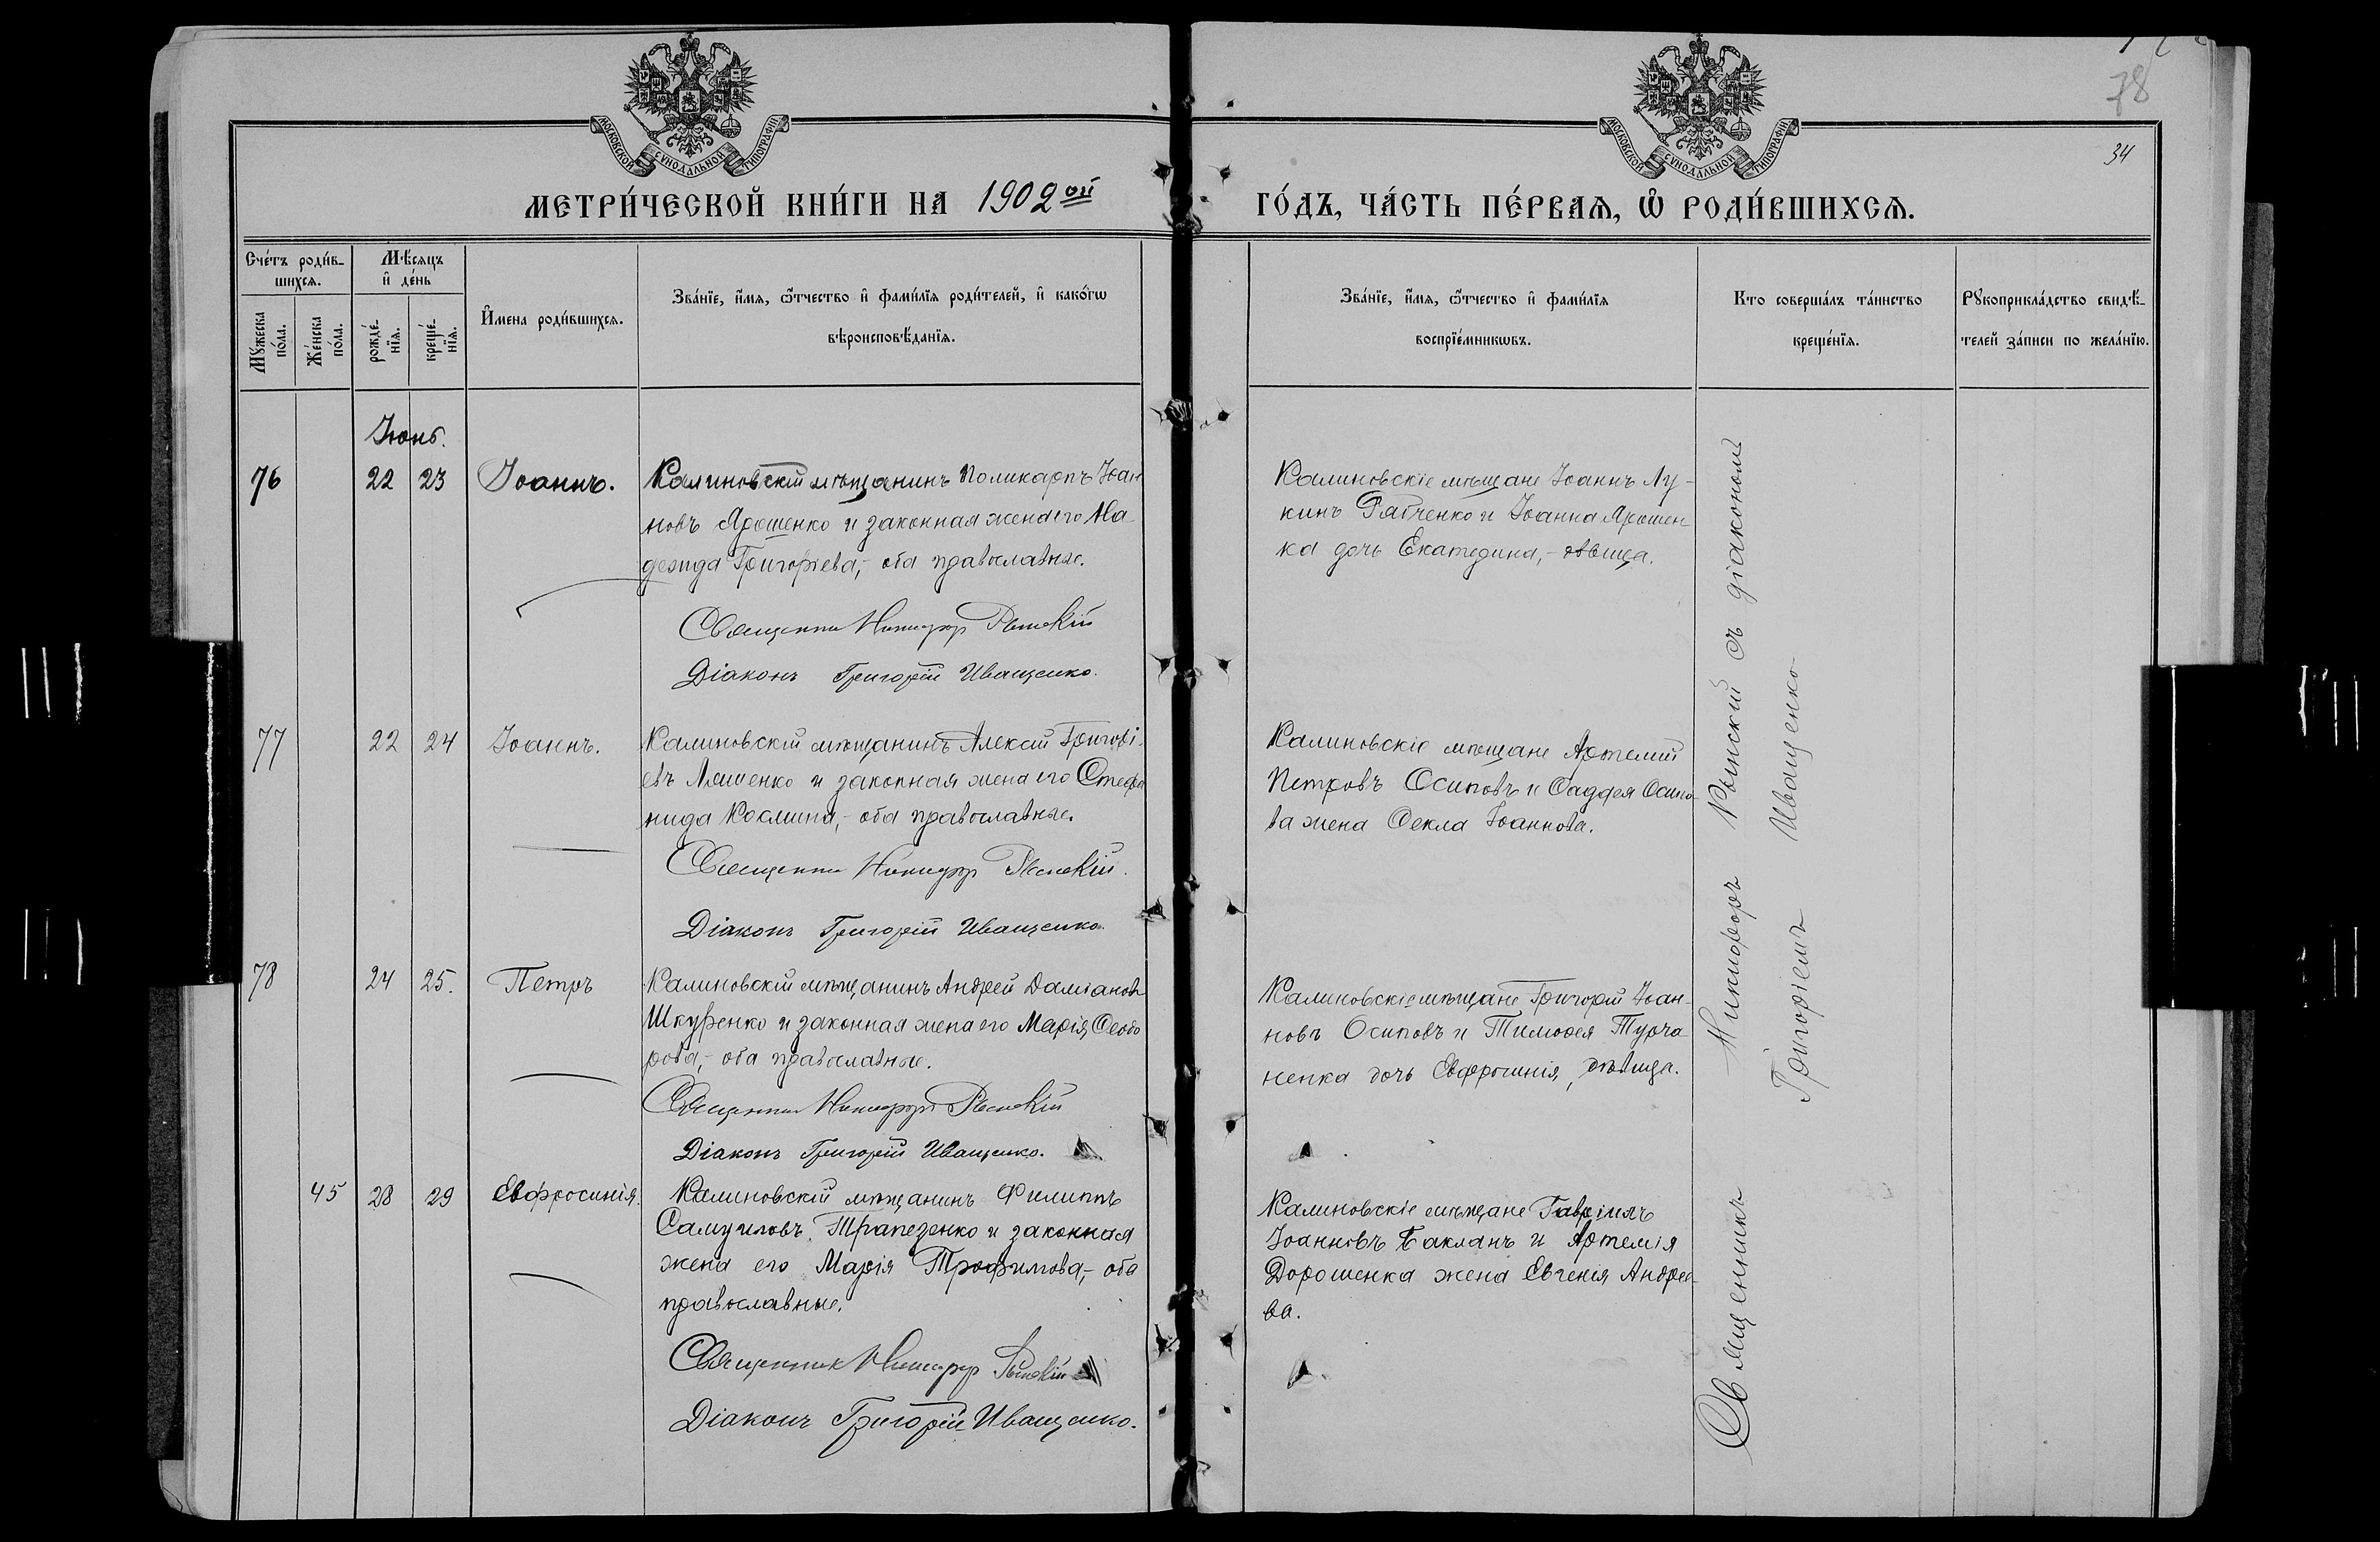 78
34
МОСКОВСКОЙ СѴНОДАЛЬНОЙ ТИПОГРАФІИ
МОСКОВСКОЙ СѴНОДАЛЬНОЙ ТИПОГРАФІИ
МЕТРИ́ЧЕСКОЙ КНИ́ГИ НА 1902ой
ГО́ДЪ, ЧА́СТЬ ПЕ́РВАѦ, Ѽ РОДИ́ВШИХСѦ.
Сче́тъ роди́в-
шихсѧ.
Мꙋ́жеска по́ла.
Же́нска по́ла.
Мѣ́сяцъ и҆ де́нь
рожде́-нїѧ.
креще́-нїѧ.
И҆мена роди́вшихсѧ.
Зва́нїе, и҆́мѧ, ѻ҆́тчество и҆ фами́лїѧ роди́телей, и҆ како́гѡ
вѣроисповѣ́данїѧ.
Зва́нїе, и҆́мѧ, ѻ҆́тчество и҆ фами́лїѧ
воспрїе́мникѡвъ.
Кто соверша́лъ та́инство
креще́нїѧ.
Рꙋкоприкла́дство свидѣ́-
телей за́писи по жела́нїю.
Іюнь.
76 22 23 Іоаннъ.
Калиновскій мѣщанинъ Поликарпъ Іоан
новъ Ярошенко и законная жена его На-
дежда Григоріева,- оба православные.
Священник Никифор Рыпскій
Діаконъ Григорій Иващенко.
Калиновскіе мѣщане Іоаннъ Лу-
кинъ Рябченко и Іоанна Ярошен
ка дочь Екатерина,- дѣвица.
77 22 24 Іоаннъ.
Калиновскій мѣщанинъ Алексій Григорі-
евъ Ляшенко и законная жена его Стефа
нида Космина,- оба православные.
Священник Никифор Рыпскій.
Діаконъ Григорій Иващенко.
Калиновскіе мѣщане Артемій
Петровъ Осиповъ и Ѳаддея Осипо-
ва жена Ѳекла Іоаннова.
78 24 25. Петръ
Калиновскій мѣщанинъ Андрей Даміановъ
Шкуренко и законная жена его Марія Ѳеодо
рова,- оба православные.
Священник Никифоръ Рыпскій
Діаконъ Григорій Иващенко.
Калиновскіе мѣщане Григорій Іоан-
новъ Осиповъ и Тимоѳея Турча-
ненка дочь Евфросинія, дѣвица.
45 28 29 Евфросинія.
Калиновскій мѣщанинъ Филиппъ
Самуиловъ Трапезенко и законная
жена его Марія Трофимова,- оба
православные.
Священник Никифор Рыпскій
Діаконъ Григорій Иващенко.
Калиновскіе мѣщане Гавріилъ
Іоанновъ Бакланъ и Артемія
Дорошенка жена Евгенія Андрее-
ва.
Священникъ Никифоръ Рыпскій съ діакономъ
Григоріемъ Иващенко